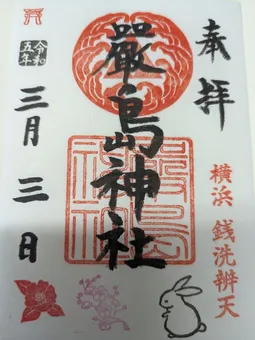 奉拝
横浜 銭洗辨天
嚴島神社
令和五年
三月三日